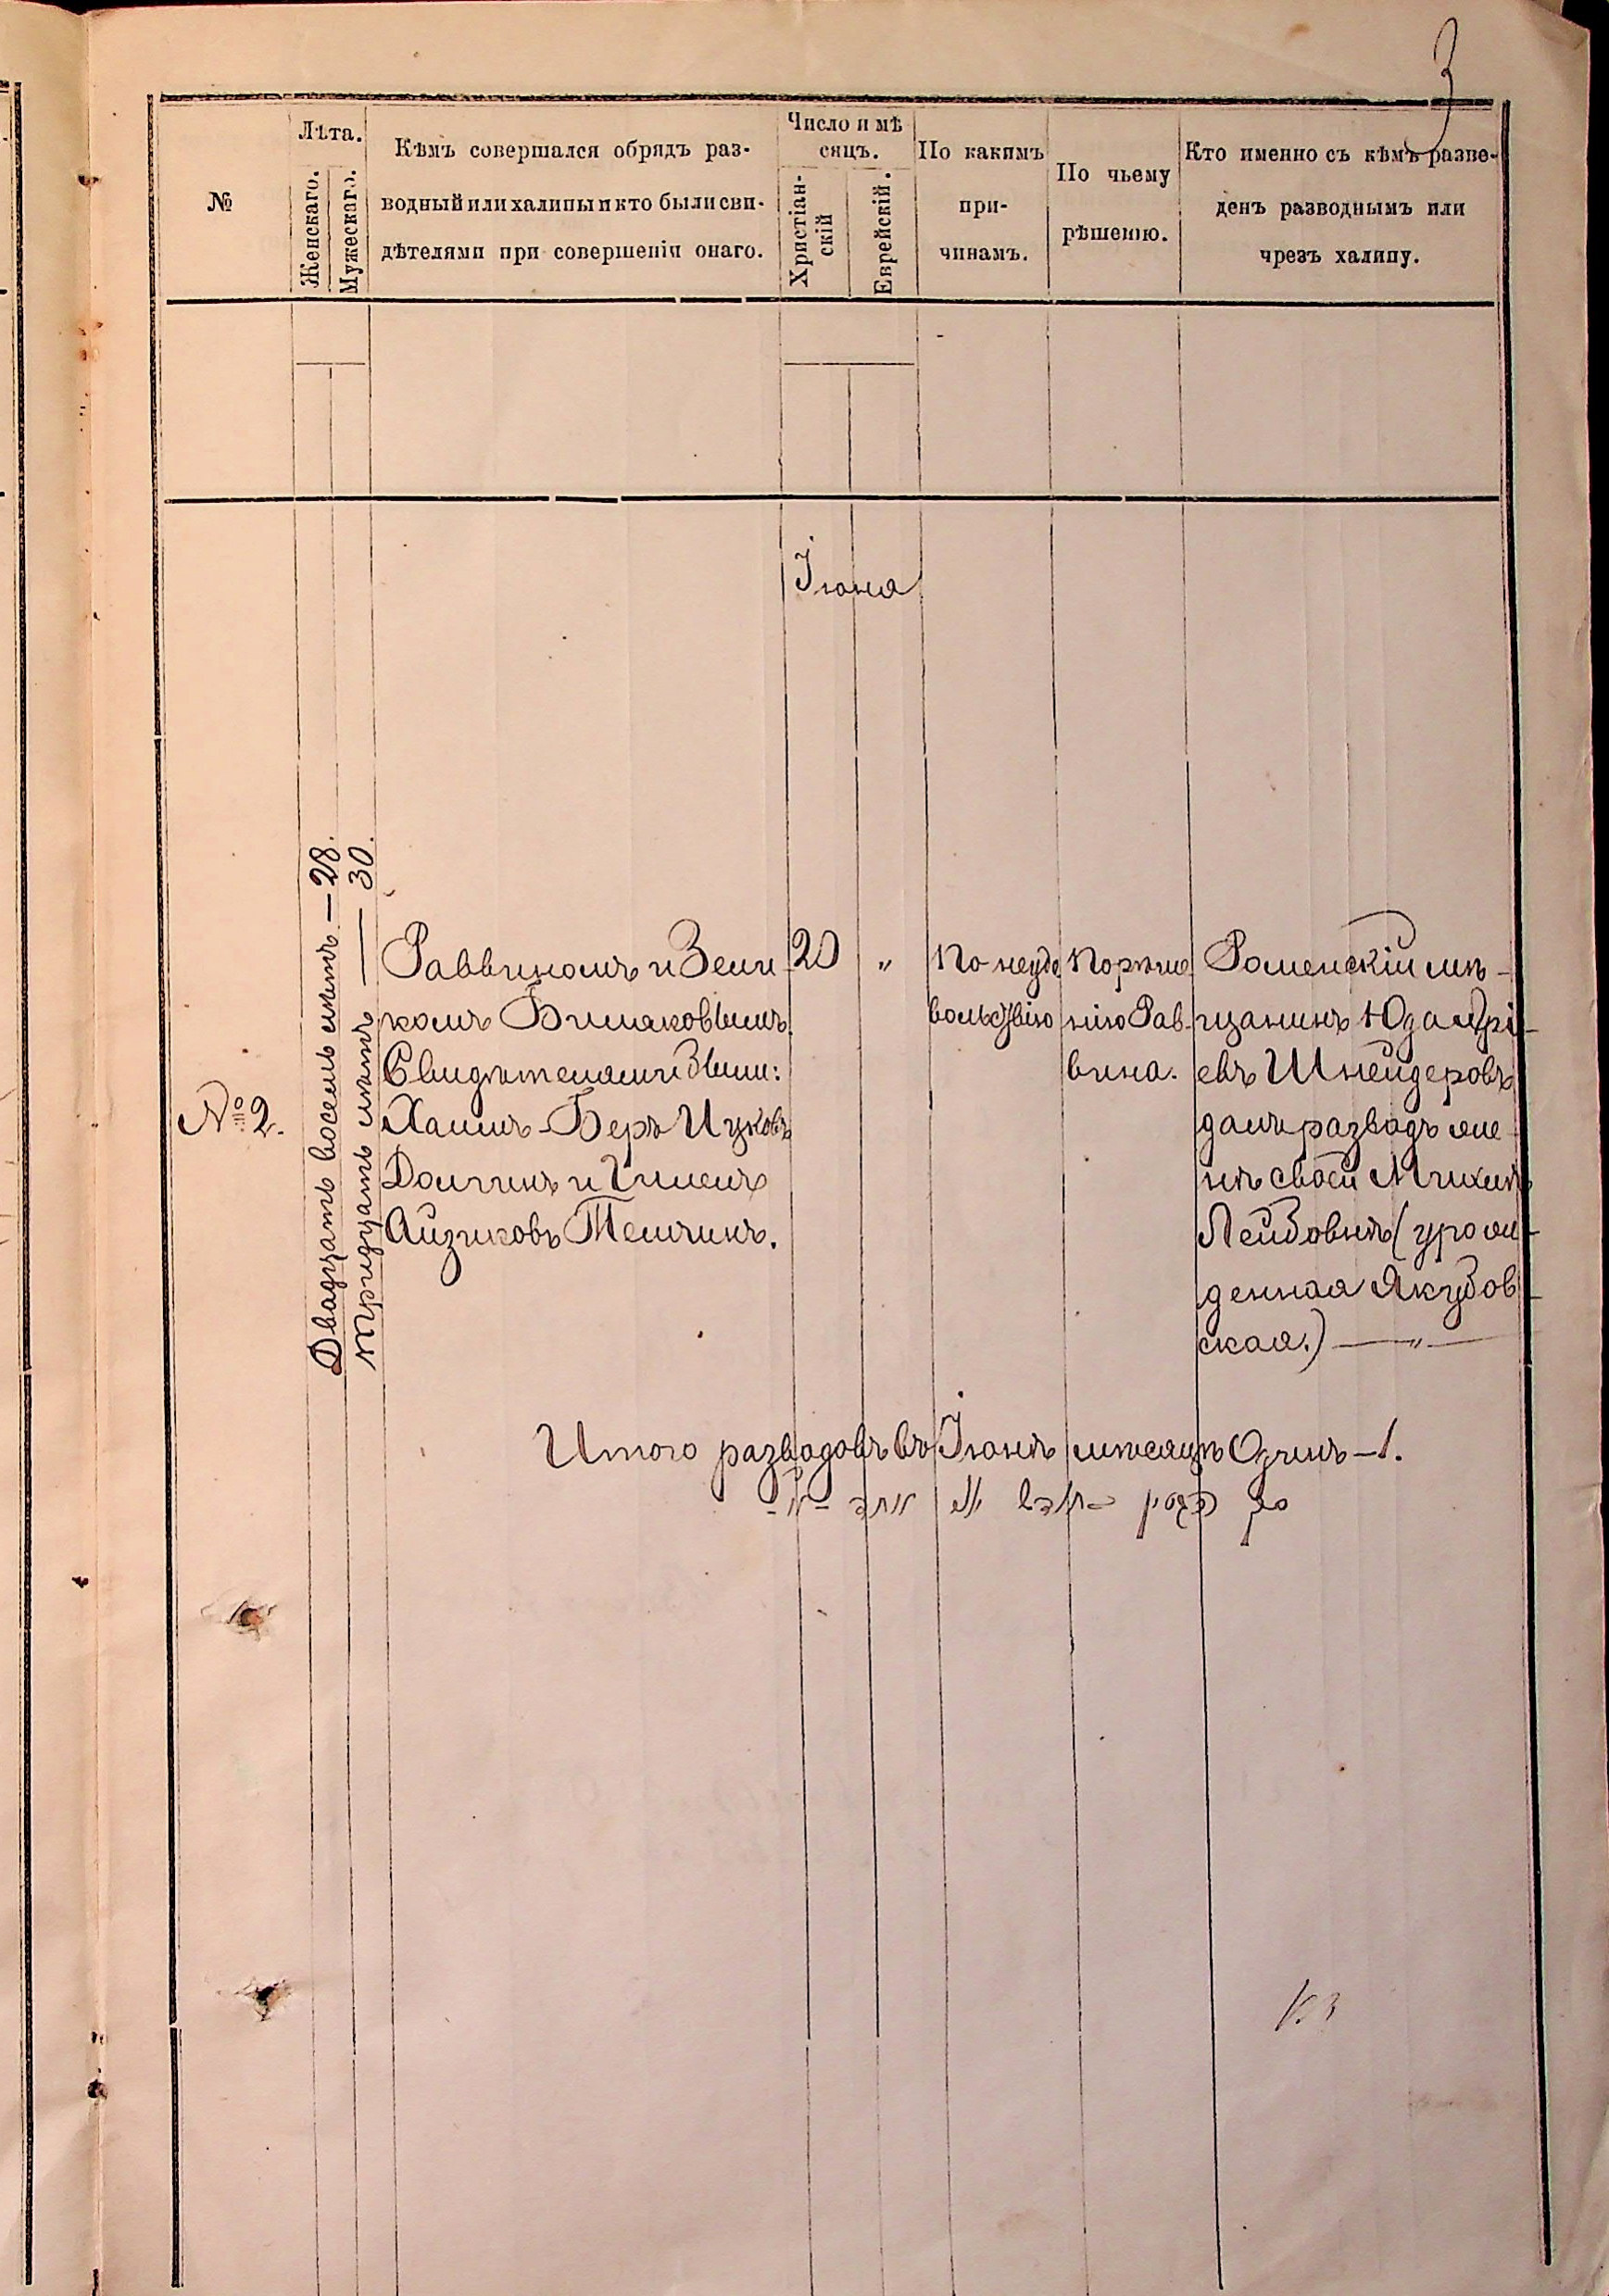 3
№
Лѣта.
Женскаго.
Мужескаго.
Кѣмъ совершался обрядъ раз-
водный или халицы и кто были сви-
дѣтелями при совершеніи онаго.
Число и мѣ
сяцъ.
Христіан-
скій
Еврейскій.
По какимъ
при-
чинамъ.
По чьему
рѣшенію.
Кто именно съ кѣмъ разве-
денъ разводнымъ или
чрезъ халицу.
Іюня
№ 2.
Двадцать восемь лѣтъ — 28.
Тридцать лѣтъ — 30.
Раввиномъ и Зели
комъ
Свидѣтелями были:
Хаимъ-Беръ Ицковъ
Долгинъ и
Айзиковъ Темчинъ.
20
"
По неудо
вольствію
По рѣше
нію Рав-
вина.
Роменскій мѣ-
щанинъ Юда
евъ Шнейдеровъ
далъ разводъ же-
нѣ своей Михлѣ
Лейбовнѣ (урож-
денная Якубов-
ская.) — " —
Итого разводовъ въ Іюнѣ мѣсяцѣ Одинъ — 1.